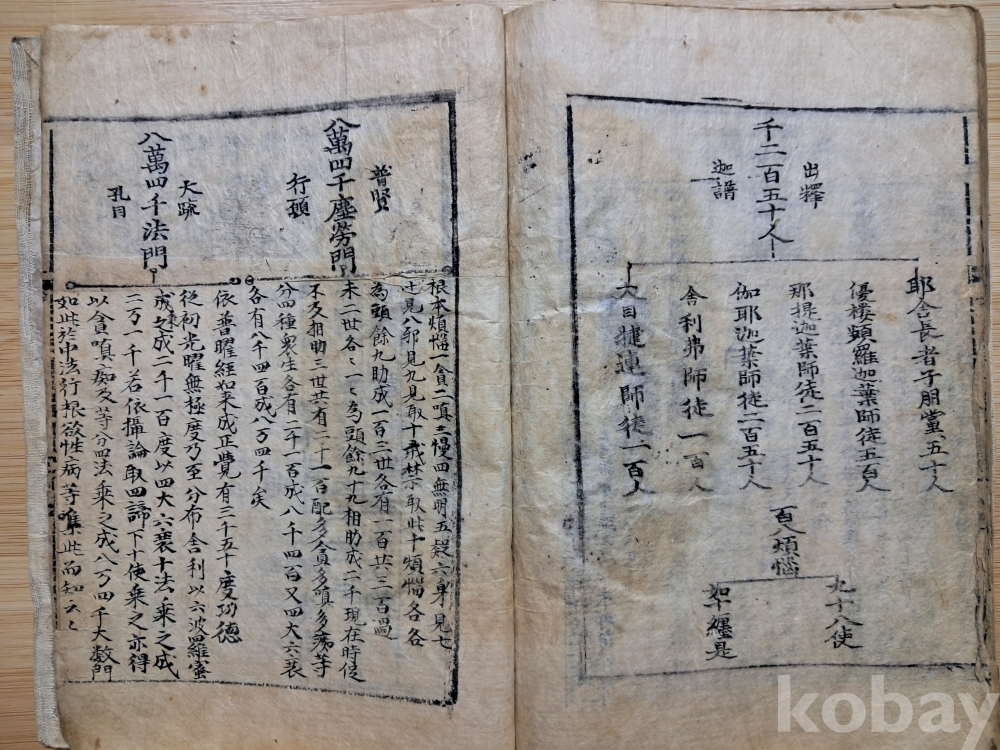 千二百五十人
出釋
迦譜
耶舍長者子朋黨五十人
優樓頻羅迦葉師徒五百人
那提迦葉師徒二百五十人
伽耶迦葉師徒二百五十人
舍利弗師徒一百人
大目揵連師徒一百人
百八煩惱
九十八使
如十纏是
八萬四千塵勞門
普賢
行願
根本煩惱一貪二嗔三慢四無明五疑六身見七
辺見八邪見九見取十戒禁取此十煩惱各各
為頭餘九助成一百三世各有一百共三百過
未二世各〻〻為頭餘九十九相助成二千現在時促
不及相助三世共有二十一百配多貪多嗔多痴等
分四種衆生各有二千一百成八千四百又四大六衰
各有八千四百成八万四千矣
八萬四千法門
大疏
孔目
依普曜經如来成正覺有三千五十度功德
從初光曜無極度乃至分布舍利以六波羅蜜
成之成二千一百度以四大六衰十法乘之成
二万一千若依攝論取四諦下十使乘之亦得
以貪嗔痴及等分四法乘之成八万四千大數門
如此於中法行根欲性病等唯此而知云〻
kobay